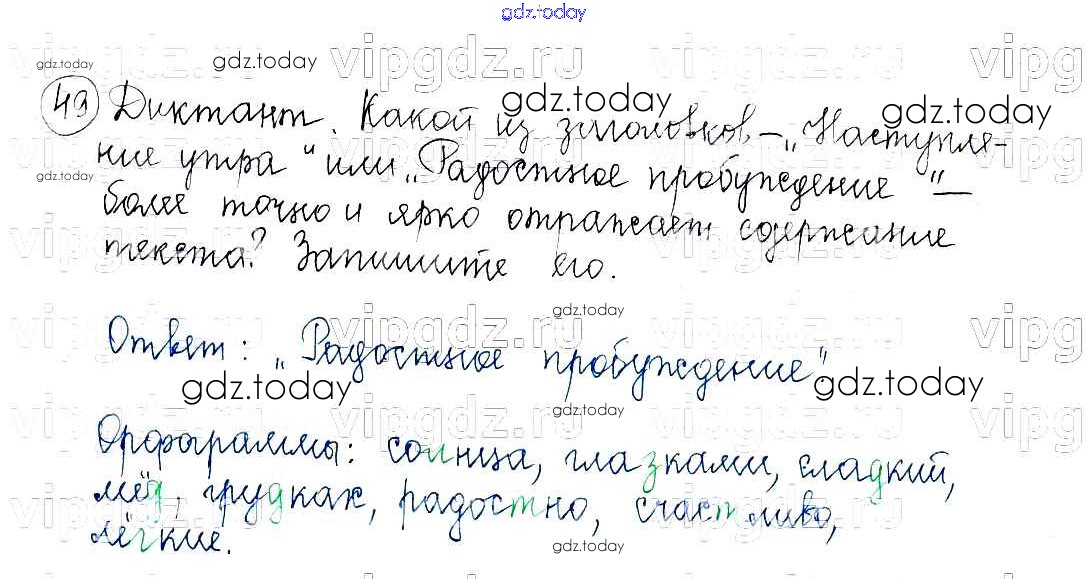 gdz.today
vipgdz.ru
gdz.today
49 Диктант. Какой из заголовков – „Наступле-
ние утра" или „Радостное пробуждение" –
более точно и ярко отражает содержание
текста? Запишите его.
gdz.today
Ответ: „Радостное пробуждение".
gdz.today
Орфограммы: солнца, глазками, сладкий,
мёд, грудках, радостно, счастливо,
лёгкие.
gdz.today